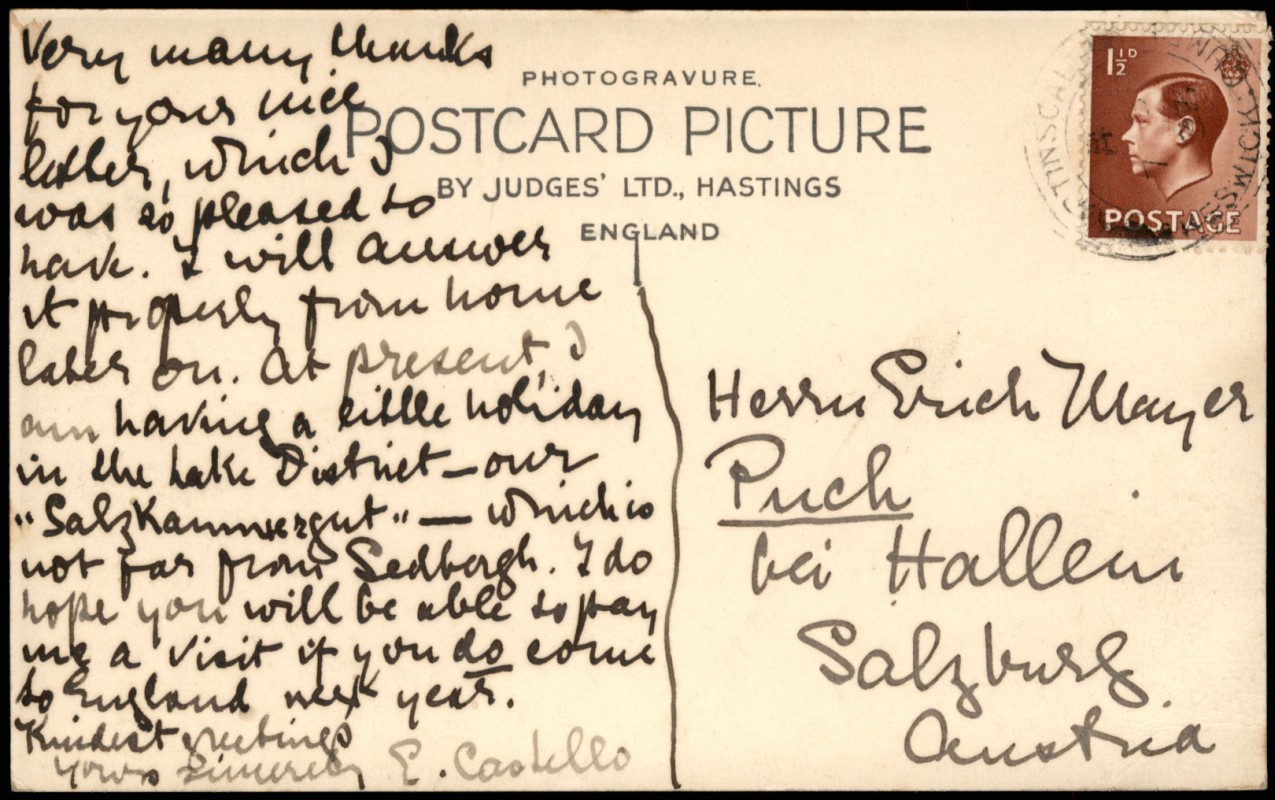 Very many thanks
for your nice
letter, which I
was so pleased to
have. I will answer
it properly from home
later on. At present, I
am having a little holiday
in the Lake District — our
"Salzkammergut" — which is
not far from Sedbergh. I do
hope you will be able to pay
me a visit if you do come
to England next year.
Kindest greetings
Yours sincerely E. Castello
PHOTOGRAVURE.
POSTCARD PICTURE
BY JUDGES' LTD., HASTINGS
ENGLAND
1½D
POSTAGE
KESWICK
Herrn Erich Mayer
Puch
bei Hallein
Salzburg
Austria